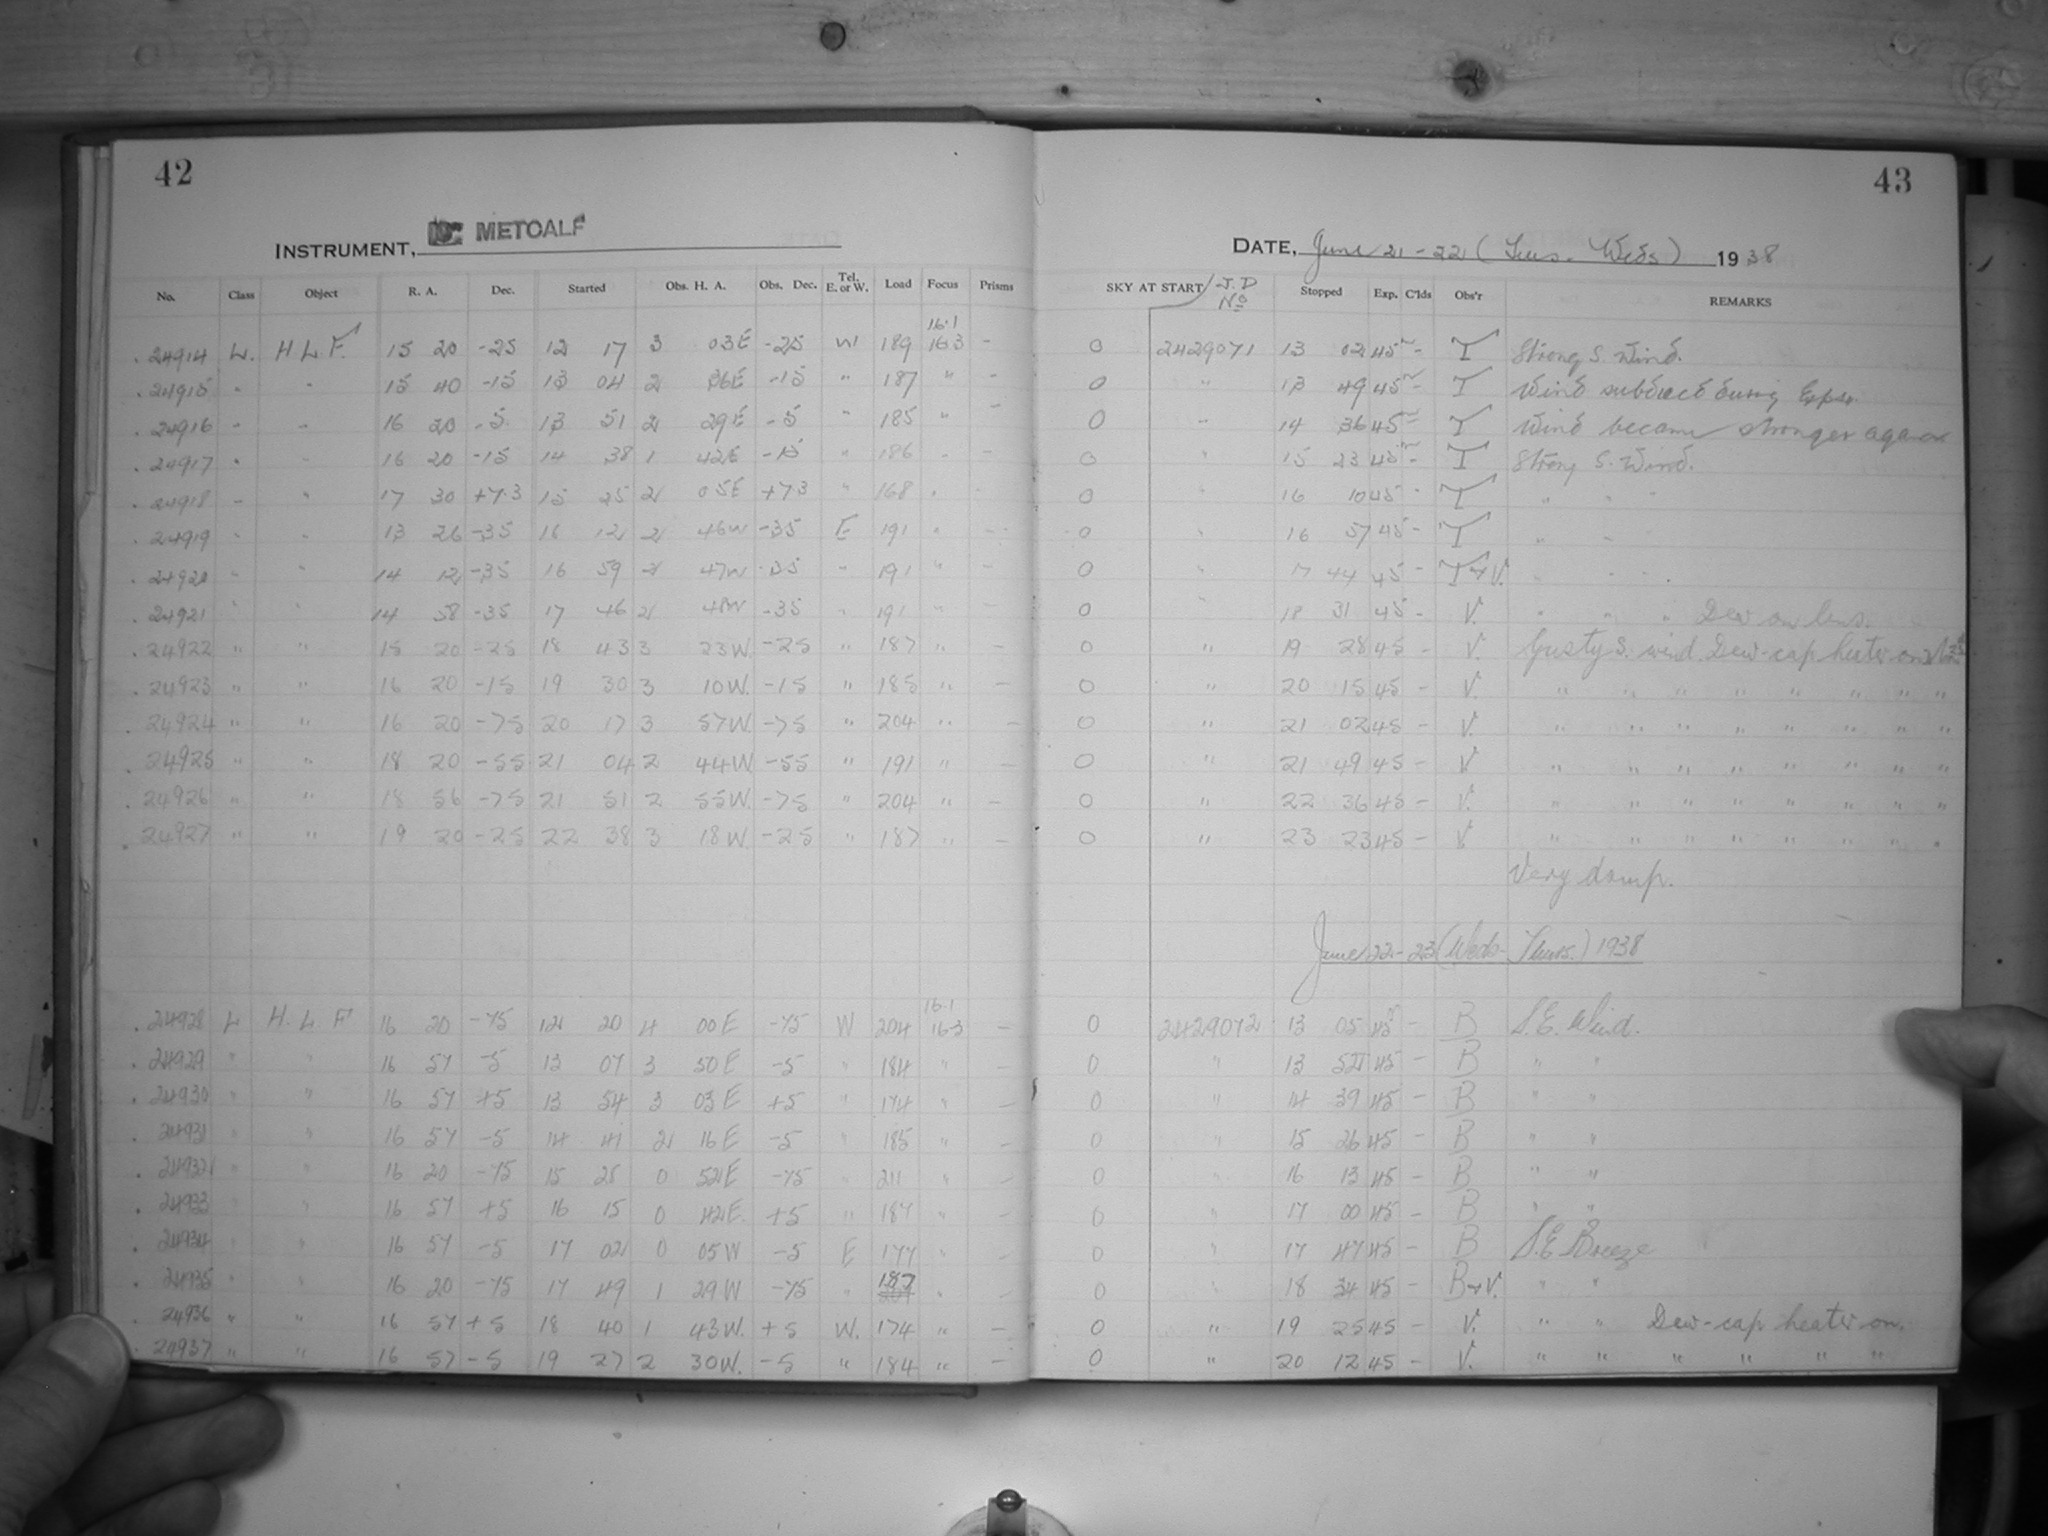 42
43
INSTRUMENT, METCALF
DATE, June 21-22 (Tues-Weds) 1938
No. Class Object R. A. Dec. Started Obs. H. A. Obs. Dec. Tel. E. or W. Load Focus Prisms SKY AT START J.D. No Stopped Exp. C'lds Obs'r REMARKS
16.1
24914 L. H L F. 15 20 -25 12 17 3 03E -25 W 189 16.3 - 0 2429071 13 02 45m - T Strong S. Wind.
24915 " " 15 40 -15 13 04 2 36E -15 " 187 " - 0 " 13 49 45m - T Wind subdued during Expsr.
24916 " " 16 20 -5 13 51 2 29E -5 " 185 " - 0 " 14 36 45m - T Wind became stronger again
24917 " " 16 20 -15 14 38 1 42E -15 " 186 " - 0 " 15 23 45m - T Strong S. Wind.
24918 " " 17 30 +7.3 15 25 2 05E +7.3 " 168 " - 0 " 16 10 45 - T " " "
24919 " " 13 26 -35 16 12 2 46W -35 E 191 " - 0 " 16 57 45 - T " "
24920 " " 14 12 -35 16 59 2 47W -35 " 191 " - 0 " 17 44 45 - T+V. " " "
24921 " " 14 58 -35 17 46 2 48W -35 " 191 " - 0 " 18 31 45 - V. " " " Dew on lens.
24922 " " 15 20 -25 18 43 3 23W. -25 " 187 " - 0 " 19 28 45 - V. Gusty S. wind. Dew-cap heater on
24923 " " 16 20 -15 19 30 3 10W. -15 " 185 " - 0 " 20 15 45 - V. " " " " " " " "
24924 " " 16 20 -75 20 17 3 57W. -75 " 204 " - 0 " 21 02 45 - V. " " " " " " " "
24925 " " 18 20 -55 21 04 2 44W -55 " 191 " - 0 " 21 49 45 - V " " " " " " " "
24926 " " 18 56 -75 21 51 2 55W. -75 " 204 " - 0 " 22 36 45 - V. " " " " " " " "
24927 " " 19 20 -25 22 38 3 18W -25 " 187 " - 0 " 23 23 45 - V " " " " " " " "
Very damp.
June 22-23 (Weds-Thurs.) 1938
16.1
24928 L H. L F 16 20 -75 12 20 4 00E -75 W 204 16.3 - 0 2429072 13 05 45m - B S.E. Wind.
24929 " " 16 57 -5 13 07 3 50E -5 " 184 " - 0 " 13 52 45 - B " "
24930 " " 16 57 +5 13 54 3 03E +5 " 174 " - 0 " 14 39 45 - B " "
24931 " " 16 57 -5 14 41 2 16E -5 " 185 " - 0 " 15 26 45 - B " "
24932 " " 16 20 -75 15 28 0 52E -75 " 211 " - 0 " 16 13 45 - B " "
24933 " " 16 57 +5 16 15 0 42E. +5 " 187 " - 0 " 17 00 45 - B " "
24934 " " 16 57 -5 17 02 0 05W -5 E 177 " - 0 " 17 47 45 - B S.E Breeze
24935 " " 16 20 -75 17 49 1 29W -75 " 187 " - 0 " 18 34 45 - B+V. " "
24936 " " 16 57 +5 18 40 1 43W. +5 W. 174 " - 0 " 19 25 45 - V. " " Dew-cap heater on.
24937 " " 16 57 -5 19 27 2 30W. -5 " 184 " - 0 " 20 12 45 - V. " " " " " "